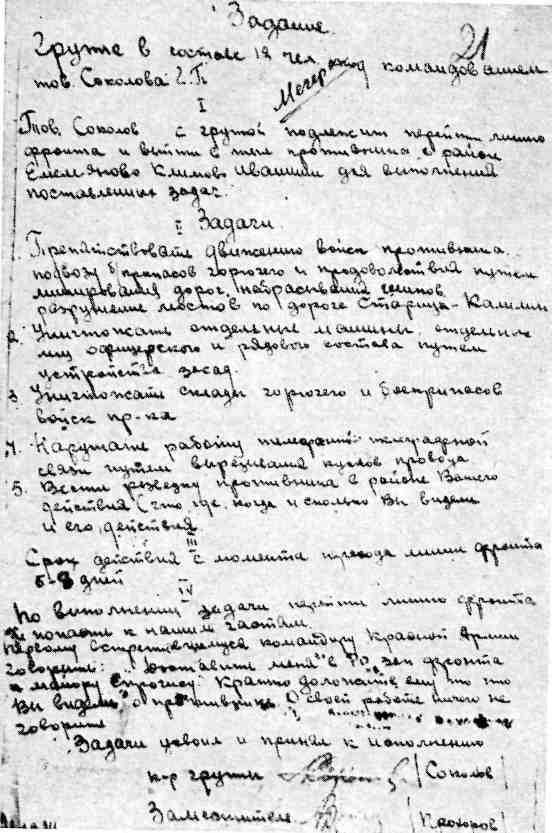 Задание
21
Группе в составе 12 чел. под командованием
тов. Соколова Г.П
I
Тов. Соколов с группой подлежит перейти линию
фронта и выйти в тыл противника в район
Емельяново Климово Ивашики для выполнения
поставленных задач.
II Задачи.
Препятствовать движению войск противника
подвозу боеприпасов горючего и продовольствия путем
минирования дорог, набрасывания шипов
разрушение мостов по дороге Старица-Калинин
2. Уничтожать отдельные машины, отдельных
лиц офицерского и рядового состава путем
устройства засад.
3. Уничтожать склады горючего и боеприпасов
войск пр-ка
4. Нарушать работу телефонно-телеграфной
связи путем вырезывания кусков провода
5. Вести разведку противника в районе Вашего
действия (что, где, когда и сколько Вы видели
и его действия
III
Срок действия с момента перехода линии фронта
5-8 дней
IV
По выполнении задачи перейти линию фронта
и попасть к нашим частям.
Первому встретившемуся командиру Красной Армии
говорите: "Доставьте меня" в Ро, зап фронта
к майору Строгису. Кратко доложите ему то что
Вы видели о противнике. О своей работе ничего не
говорите
Задачи усвоил и принял к исполнению
к-р группы (Соколов)
Заместитель (Прохоров)